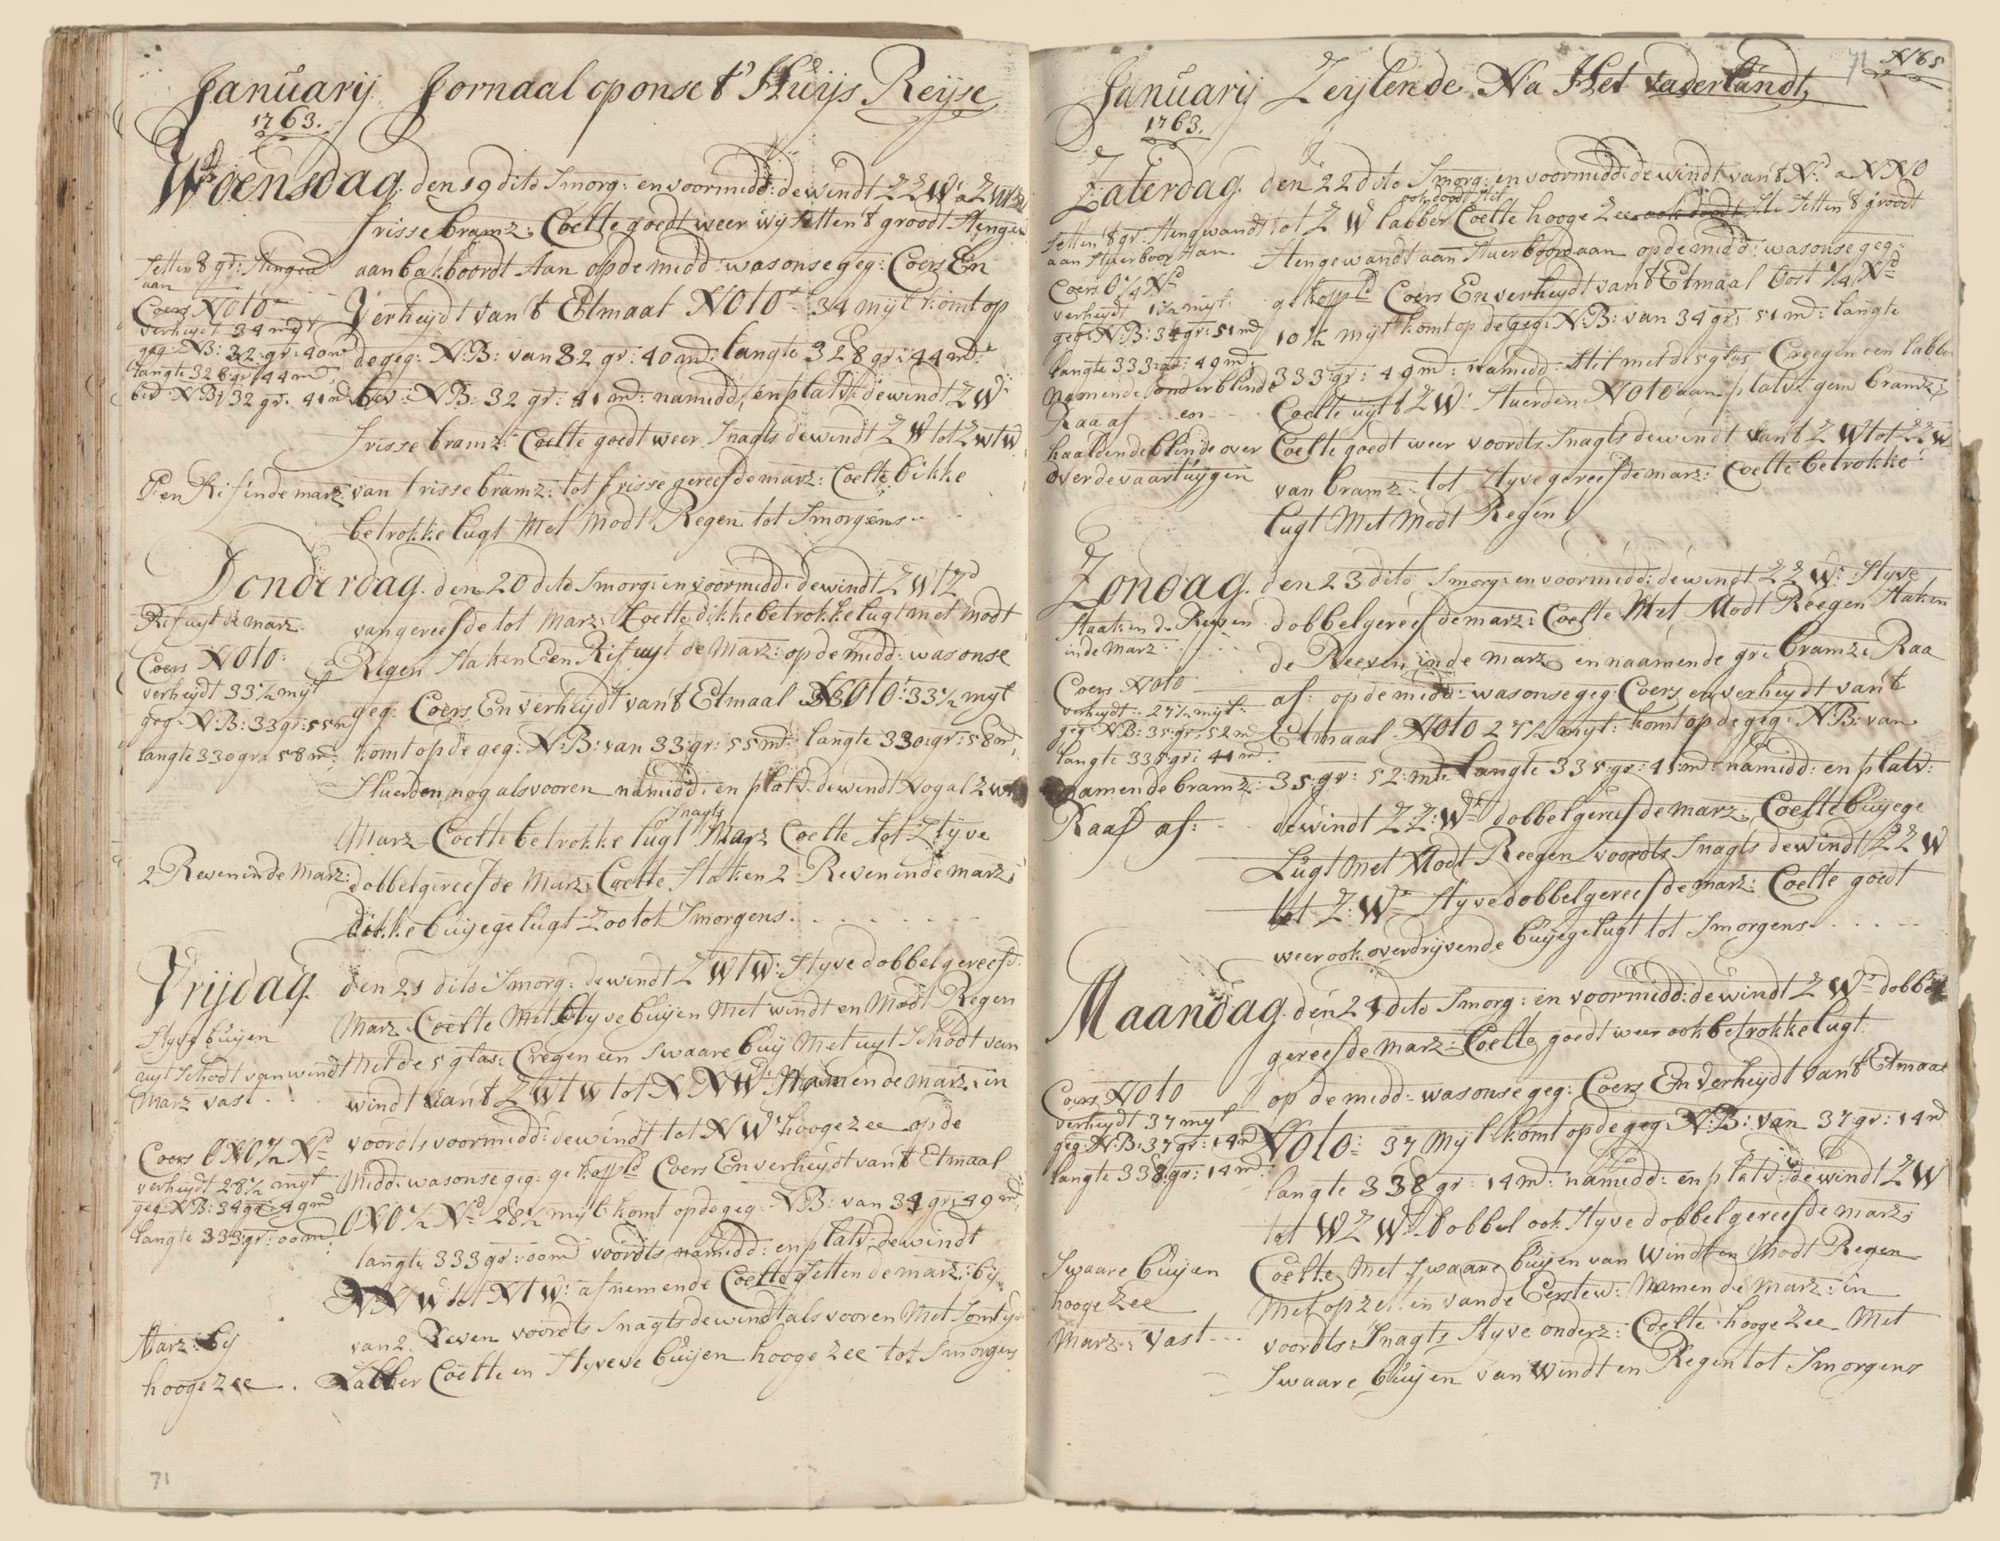 Januarij Jornaal op onse t' Huijs Reijse
1763.
Woensdag. den 19 dito Smorg: en voormidd: de windt ZZW a ZWtZ
frisse bramz: Coelte goedt weer wij setten 't groodt stenge
setten 't gr: stenge
aan
aan bakboordt aan op de midd: was onse geg: Coers En
Coers NOtO
verheydt 34 myl
geg: NB: 32: gr: 40 md
langte 328 gr: 44 md
bev: NB: 32 gr: 41 md
Verheydt van 't Etmaal NOtO 34 myl komt op
de geg: NB: van 32 gr: 40 md: langte 328 gr: 44 md:
bev: NB: 32 gr: 41 md: namidd: en platv: de windt ZW:
frisse bramz: Coelte goedt weer Snagts de windt ZW tot ZWtW
Een Rif in de marz
van frisse bramz: tot frisse gereefde marz: Coelte Dikke
betrokke lugt Met Modt Regen tot Smorgens
Donderdag. den 20 dito Smorg: en voormidd: de windt ZWtZ
Rif uyt de marz.
van gereefde tot Marz: Coelte dikke betrokke lugt met modt
Regen staken Een Rif uyt de Marz: op de midd: was onse
Coers NOtO:
verheydt 33½ myl
geg: NB: 33 gr: 55 md
langte 330 gr: 58 md:
geg: Coers En verheydt van 't Etmaal NOtO: 33½ myl
komt op de geg: NB: van 33 gr: 55 md: langte 330: gr: 58 md,
Stuerden nog als vooren namidd: en platv: de windt Nog al ZWt
Snagts
Marz Coelte betrokke lugt Marz Coelte tot Styve
2 Reven in de Marz:
dobbelgereefde Marz: Coelte staken 2 Reven in de marz:
Dikke buijege lugt Zoo tot Smorgens.
Vrijdag. den 21 dito Smorg: de windt ZWtW: Styve dobbelgereefd.
Marz: Coelte Met Styve buijen Met windt en Modt Regen
Styve buijen
uyt schodt van windt
Marz vast
Met de 5 glas: Cregen een swaare buij Met uyt Schodt van
windt van 't ZWtW tot NNW: Namen de marz: in
voordts voormidd: de windt tot NW: hooge zee op de
Coers ONO½ Nd
verheydt 28½ myl
geg: NB: 34 gr: 49 md
langte 333: gr: 00 m:
Midd: was onse geg: gekoppld Coers En verheydt van 't Etmaal
ONO½ Nd 28½ myl: komt op de geg: NB: van 34 gr: 49 md,
langte 333 gr: 00 md voordts namidd: en platv: de windt
NNW tot NtW: afnemende Coelte setten de marz: bij
van 2 Reven voordts Snagts de windt als vooren Met Somtyds
Marz: bij
hooge zee
Labber Coelte en Styve buijen hooge zee tot Smorgens
71
71 N65
Januarij Zeylende Na Het vaderlandt,
1763.
Zaterdag. den 22 dito Smorg: en voormidd: de windt van 't Nd a NNO
ook doodt stil
setten 't gr: stengwandt
aan stuerboor Aan
tot ZW labber Coelte hooge Zee setten 't groodt
stengewandt aan stuerboord aan op de midd: was onse geg:
Coers O¼Nd
verheydt 10½ myl:
geg: NB: 34 gr: 51 md
langte 333 gr: 49 md
gekoppld Coers En verheydt van 't Etmaal Oost ¼ Nd
10½ myl komt op de geg: NB: van 34 gr: 51 md: langte
333 gr: 49 m: namidd: stil met de 5 glas Creegen een labbe
Namen de onder blinde
Raa af en
haalden de blinde over
over de vaartuijgen
Coelte uyt 't ZW: stuerden NOtO aan platv: gem bramz:
Coelte goedt weer voordts Snagts de windt van 't ZW tot ZZW
van bramz: tot styve gereefde marz: Coelte betrokke
lugt Met Modt Regen
Zondag. den 23 dito Smorg: en voormidd: de windt ZZW: Styve
Staaken de Reeven
in de Marz:
dobbelgereefde marz: Coelte Met Modt Reegen staken
de Reeven in de marz en naamen de gr: bramz: Raa
Coers NOtO
verheydt 27½ myl:
geg: NB: 35: gr: 52 md
langte 335 gr: 41 md:
af: op de midd: was onse geg: Coers en verheydt van 't
Etmaal NOtO 27½ myl: komt op de geg: NB: van
namen de bramz:
Raaf af:
35: gr: 52: md: langte 335: gr: 41: md: namidd: en platv:
de windt ZZW: dobbelgereefde marz: Coelte buijege
Lugt Met Modt Reegen voordts Snagts de windt ZZW
tot ZW Styve dobbelgereefde marz: Coelte goedt
weer ook overdrijvende buijege lugt tot Smorgens
Maandag. den 24 dito Smorg: en voormidd: de windt ZW dobbel
gereefde Marz: Coelte goedt weer ook betrokke lugt
Coers NOtO
verheydt 37 myl
geg: NB: 37 gr: 14 md
langte 338 gr: 14 md:
op de midd: was onse geg: Coers En verheydt van 't Etmaal
NOtO: 37 Myl komt op de geg NB: van 37 gr: 14 md
langte 338 gr: 14 md: namidd: en platv: de windt ZW
tot WZW: dobbel ook Styve dobbelgereefde marz:
Swaare buijen
hooge Zee
Marz: vast
Coelte Met swaare buijen van Windt en Modt Regen
Met op zetten van de Eerste w: Namen de Marz: in
voordts Snagts Styve onderz: Coelte hooge zee Met
Swaare buijen van windt en Regen tot Smorgens